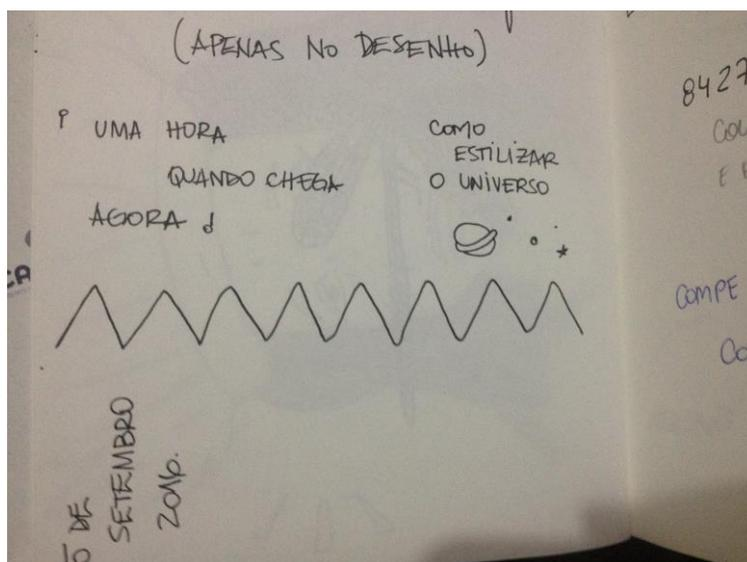 (APENAS NO DESENHO)
UMA HORA
QUANDO CHEGA
AGORA
COMO
ESTILIZAR
O UNIVERSO
DE
SETEMBRO
2016.
8427
COMPE